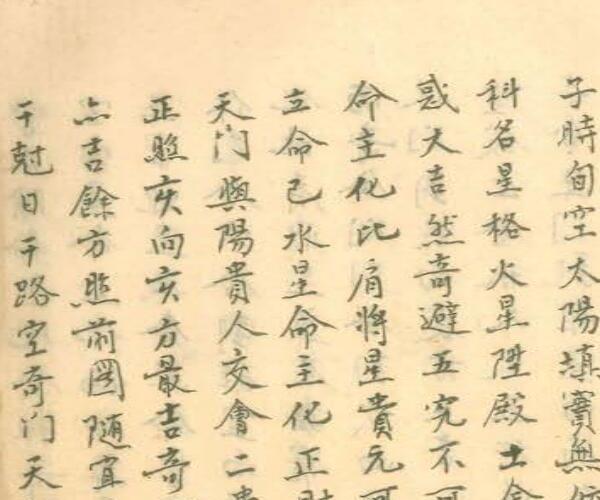 子時旬空太陽填實無
科名星格火星陞殿土
惑大吉然奇避五究不可
命主化比肩將星貴元
立命己水星命主化正財
天门與陽貴人交會二
正照亥向亥方最吉奇
亦吉餘方照前圖随宜
干尅日干路空奇门天